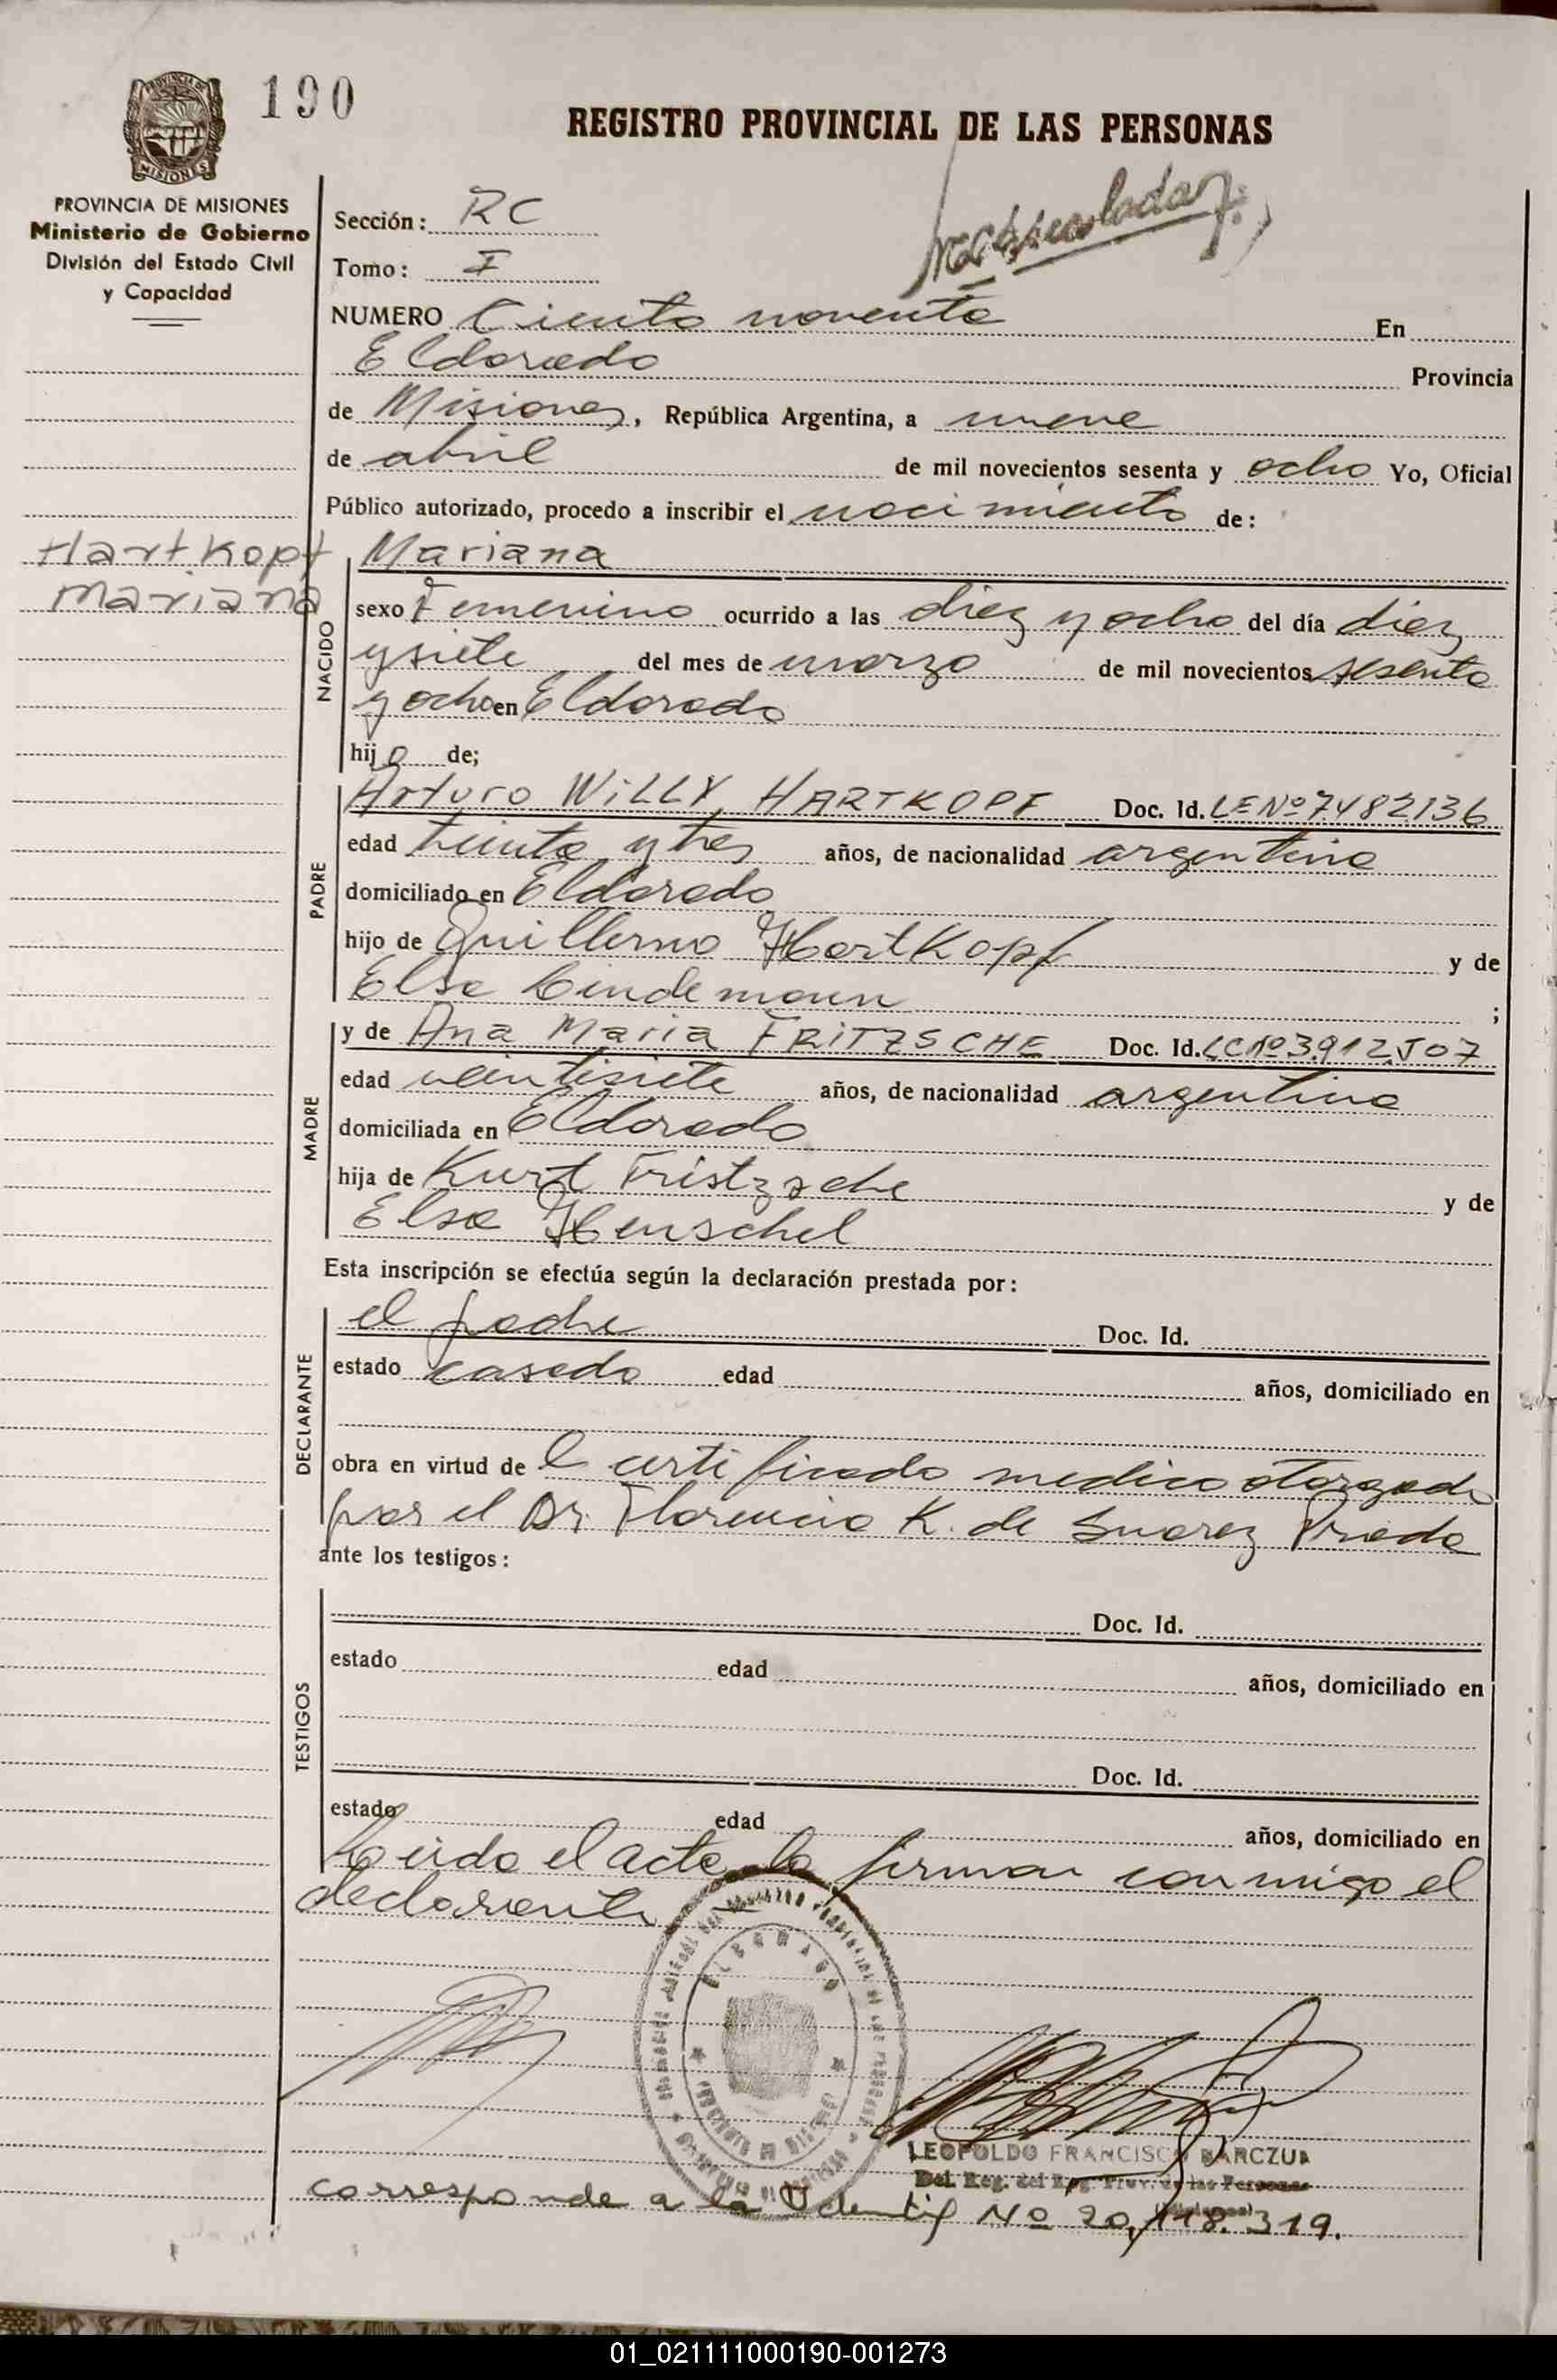 190
REGISTRO PROVINCIAL DE LAS PERSONAS
PROVINCIA DE
MISIONES
PROVINCIA DE MISIONES
Ministerio de Gobierno
División del Estado Civil
y Capacidad
Sección: RC
Tomo: I
NUMERO Ciento noventa En
Eldorado Provincia
de Misiones, República Argentina, a nueve
de abril de mil novecientos sesenta y ocho Yo, Oficial
Público autorizado, procedo a inscribir el nacimiento de:
Hartkopf
Mariana
NACIDO
Mariana
sexo Femenino ocurrido a las diez y ocho del día diez
y siete del mes de marzo de mil novecientos sesenta
y ocho en Eldorado
hija de;
PADRE
Arturo WILLY HARTKOPF Doc. Id. LE Nº 7482136
edad treinta y tres años, de nacionalidad argentina
domiciliado en Eldorado
hijo de Guillermo Hartkopf y de
Elsa Lindemann ;
MADRE
y de Ana Maria FRITZSCHE Doc. Id. LC Nº 3.912.507
edad veintisiete años, de nacionalidad argentina
domiciliada en Eldorado
hija de Kurt Fristzsche y de
Elsa Henschel
Esta inscripción se efectúa según la declaración prestada por:
DECLARANTE
el padre Doc. Id.
estado casado edad años, domiciliado en
obra en virtud del certificado medico otorgado
por el Dr. Florencio K. de Suarez Prado
ante los testigos:
TESTIGOS
Doc. Id.
estado edad años, domiciliado en
Doc. Id.
estado edad años, domiciliado en
Leida el acta la firman conmigo el
declarante
ELDORADO
LEOPOLDO FRANCISCO BARCZUK
Del. Reg. del Reg. Prov. de las Personas
corresponde a la Identif Nº 20,118.319.
01_021111000190-001273